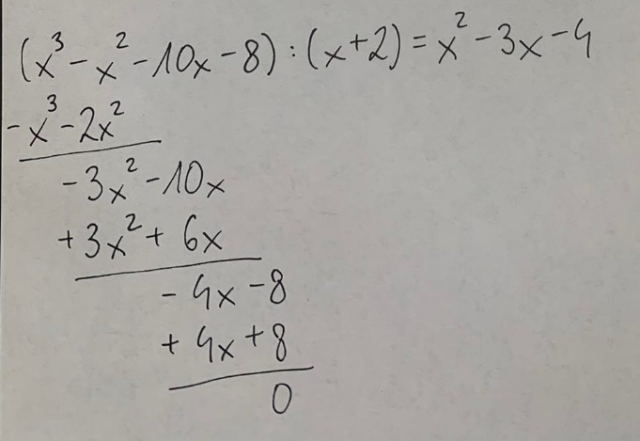 (x³ - x² - 10x - 8) : (x + 2) = x² - 3x - 4
- x³ - 2x²
- 3x² - 10x
+ 3x² + 6x
- 4x - 8
+ 4x + 8
0